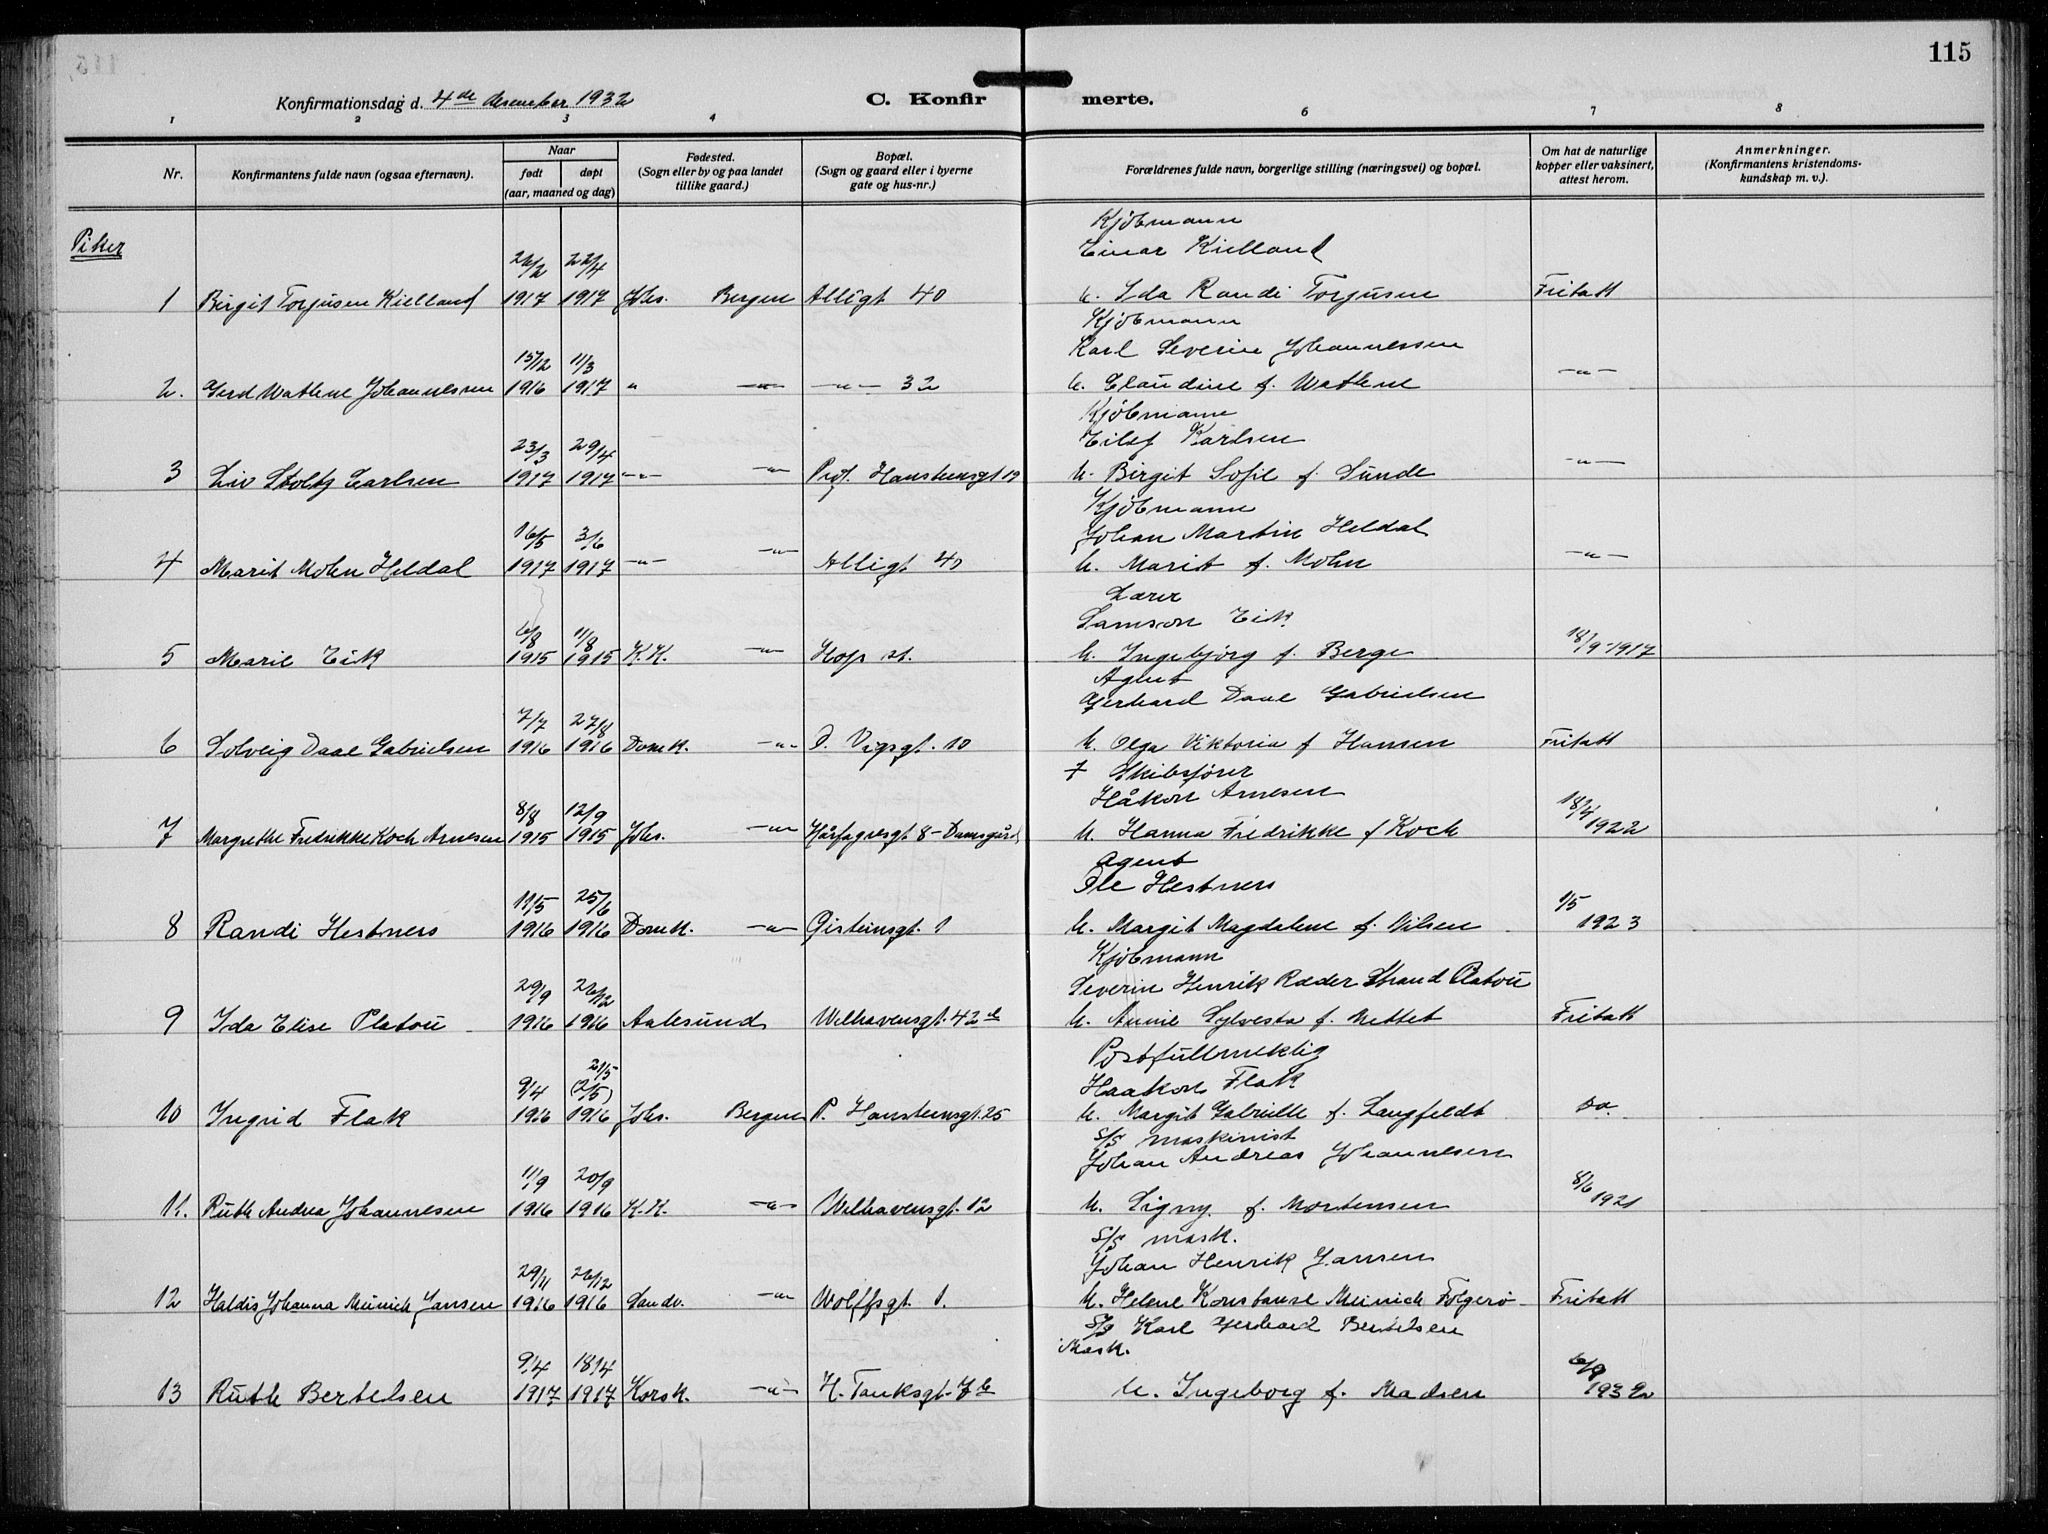 115
Konfirmationsdag d. 4de desember 1932 C. Konfir merte.
1 2 3 4 6 7 8
Nr. Konfirmantens fulde navn (ogsaa efternavn). Naar født døpt (aar, maaned og dag) Fødested. (Sogn eller by og paa landet tillike gaard.) Bopæl. (Sogn og gaard eller i byerne gate og hus-nr.) Forældrenes fulde navn, borgerlige stilling (næringsvei) og bopæl. Om hat de naturlige kopper eller vaksinert, attest herom. Anmerkninger. (Konfirmantens kristendoms- kundskap m. v.).
Piker
Kjöbmann
Einar Kielland
26/2 22/4
1 Birgit Torjusen Kielland 1917 1917 Johs. Bergen Allégt 40 h. Ida Randi Torjusen Fritatt
Kjöbmann
Karl Severin Johannessen
15/12 11/3
2. Gerd Wathne Johannesen 1916 1917 " —"— —"— 32 h. Claudine f. Wathne —"—
Kjöbmann
Eilef Karlsen
23/3 29/4
3 Liv Stoltz Carlsen 1917 1917 —"— —"— Prof. Hansteensgt 19 h. Birgit Sofie f. Sunde —"—
Kjöbmann
Johan Martin Heldal
16/5 3/6
4 Marit Mohn Heldal 1917 1917 —"— —"— Allégt 40 h. Marit f. Mohn —"—
Lærer
Samson Eik
6/8 11/8
5 Marie Eik 1915 1915 K.K. —"— Hop st. h. Ingebjörg f. Berge 18/9-1917
Agent
Gerhard Daae Gabrielsen
7/7 27/8
6 Solveig Daae Gabrielsen 1916 1916 Domk. —"— D. Vigsgt. 10 h. Olga Viktoria f Hansen Fritatt
† Skibsfører
Håkon Arnesen
8/8 12/9
7 Margrethe Fredrikke Koch Arnesen 1915 1915 Johs. —"— Hårfagresgt 8 - Damsgård h. Hanna Fredrikke f Koch 18/4 1922
Agent
Ole Hestnes
11/5 25/6
8 Randi Hestness 1916 1916 Domk. —"— Øisteinsgt. 1 h. Margit Magdalene f. Nilsen 1/5 1923
Kjöbmann
Severin Henrik Ræder Strand Platou
29/9 26/12
9 Ida Elise Platou 1916 1916 Aalesund Welhavensgt. 42 b h. Annie Sylvesta f. Mettet Fritatt
Postfullmektig
Haakon Flak
21/5
9/4 (2/5)
10 Ingrid Flak 1916 1916 Johs. Bergen P. Hansteensgt. 25 h. Margit Gabrielle f. Langfeldt Do.
S/S maskinist
Johan Andreas Johannesen
11/9 20/9
11. Ruth Andrea Johannesen 1916 1916 K.K. —"— Welhavensgt. 12 h. Signy f. Mortensen 8/6 1921
S/S mask.
Johan Henrik Jansen
29/11 26/12
12 Haldis Johanna Meinich Jansen 1916 1916 Sandv. —"— Wolffsgt. 1. h. Helene Konstanse Meinich Folgerö Fritatt
S/S Karl Gerhard Bertelsen
Mask.
9/4 18/4
13 Ruth Bertelsen 1917 1917 Korsk. —"— H. Tanksgt. 7 b h. Ingeborg f. Madsen 6/9 1932